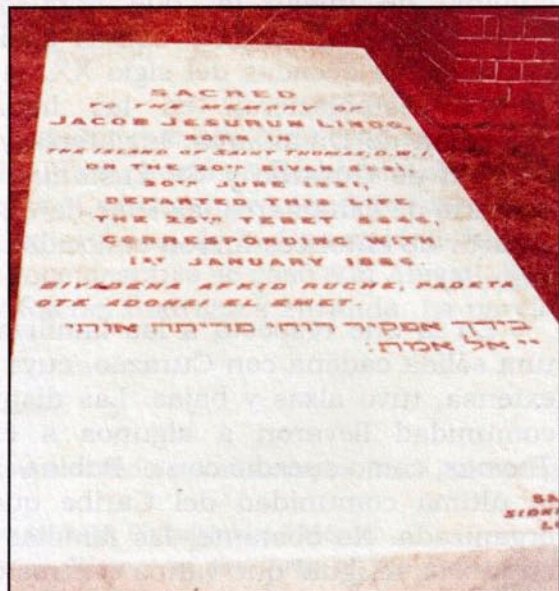 SACRED
TO THE MEMORY OF
JACOB JESURUN LINDO,
BORN IN
THE ISLAND OF SAINT THOMAS, D.W.I.
ON THE 30TH
30TH JUNE 1821,
DEPARTED THIS LIFE
THE TEBET
CORRESPONDING WITH
1ST JANUARY
BIYADEHA AFKID RUCHE, PADETA
OTE ADONAI EL EMET.
בידך אפקיד רוחי פדיתה אותי
יי אל אמת.